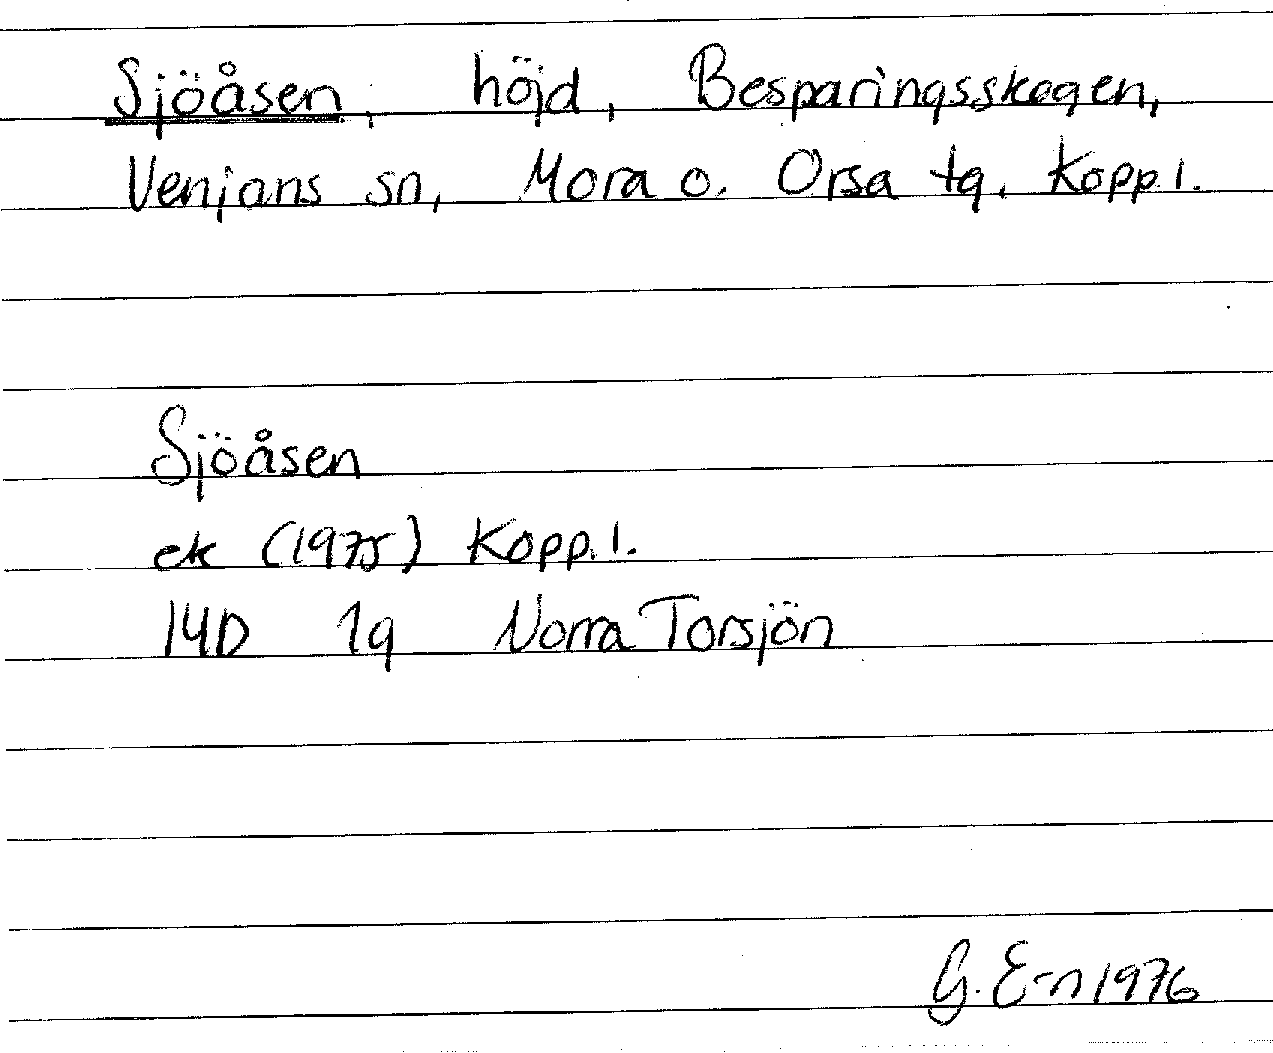 Sjöåsen, höjd, Besparingsskogen,
Venjans sn, Mora o. Orsa tg, Kopp.l.
Sjöåsen
ek (1975) Kopp.l.
14D 1g Norra Torsjön
G. E-n 1976